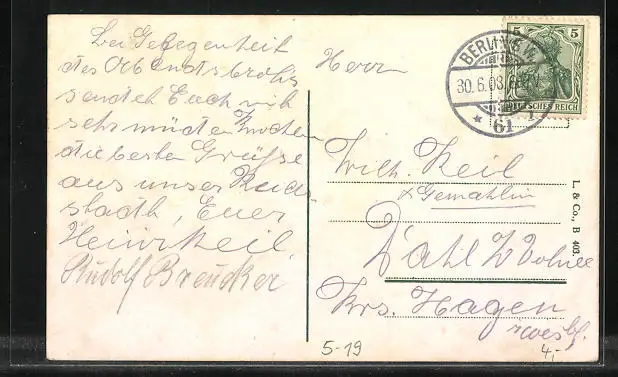 Bei Gelegenheit
des Abendsbrots
sendet Euch mit
sehr müden Knochen
die besten Grüße
aus unser Reichs-
stadt, Euer
Heinr Keil
Rudolf Breucker
Herrn
Wilh. Keil
& Gemahlin
Dahl i/ Volme
Krs. Hagen
i/westf.
BERLIN S.W.
30.6.08.
* 61
5 5
DEUTSCHES REICH
L. & Co., B 403.
5-19
4,-